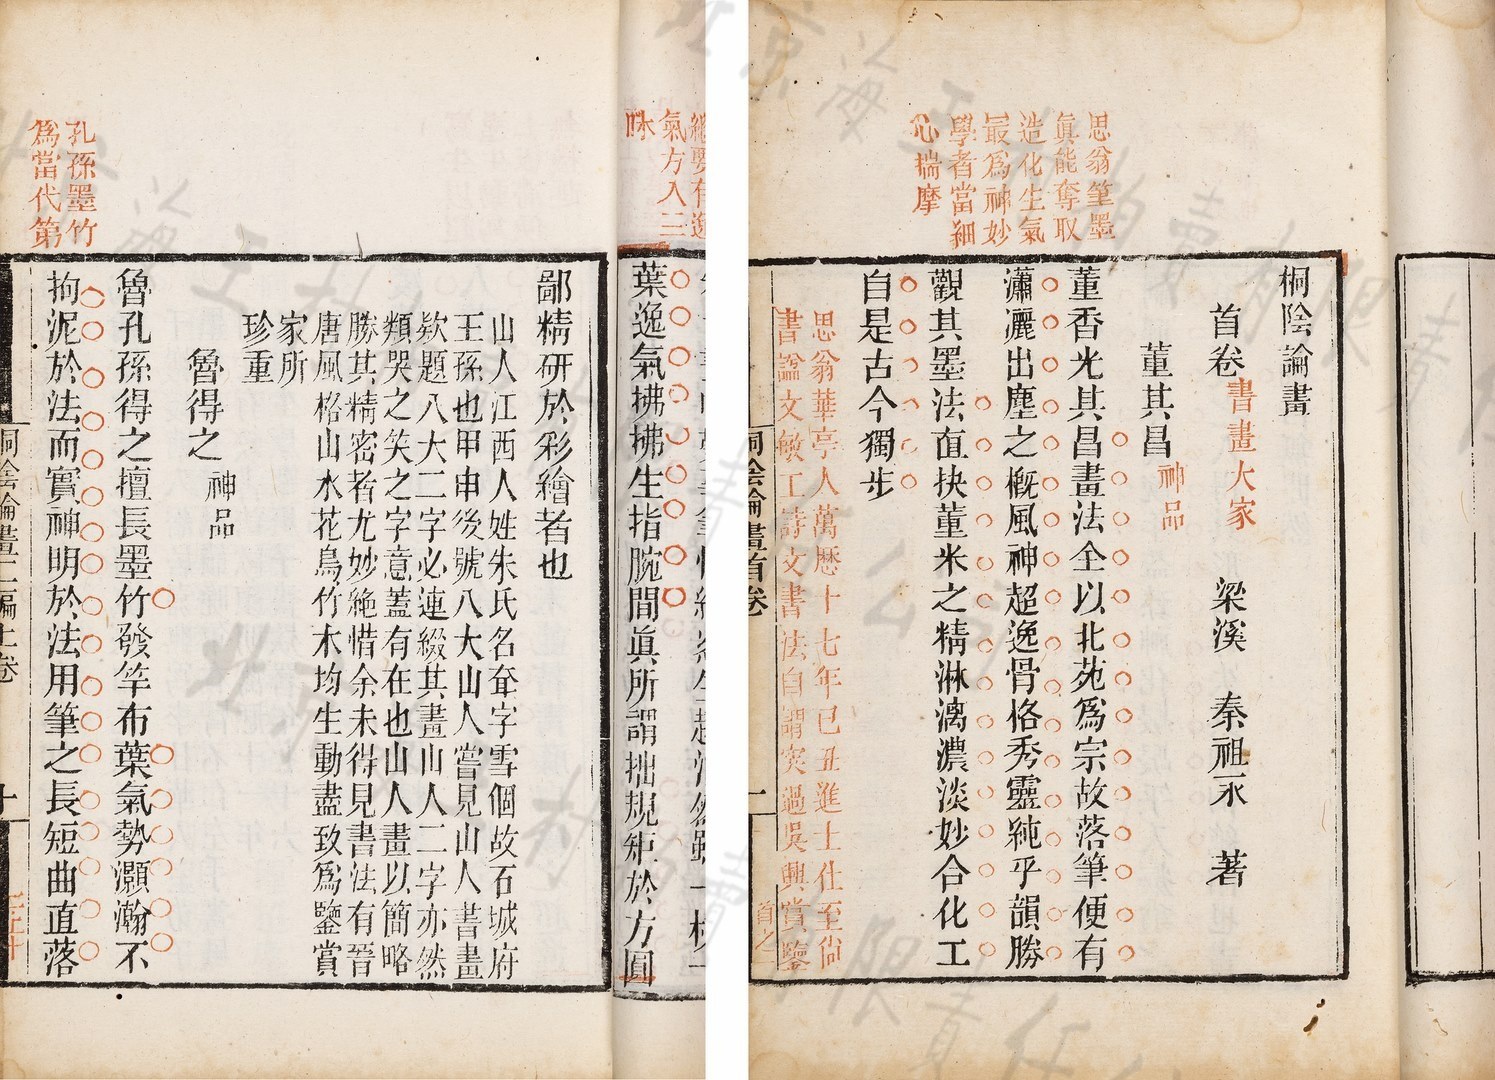 思翁筆墨
真能奪取
造化生氣
最爲神妙
學者當細
心揣摩
桐陰論畫
首卷 書畫大家 梁溪 秦祖永 著
董其昌 神品
董香光其昌畫法全以北苑爲宗故落筆便有
瀟灑出塵之概風神超逸骨格秀靈純乎韻勝
觀其墨法直抉董米之精淋漓濃淡妙合化工
自是古今獨步
思翁華亭人萬歷十七年己丑進士仕至尙
書諡文敏工詩文書法自謂突過吳興賞鑒
桐陰論畫首卷
一
首之一
氣方入三
昧
葉逸氣拂拂生指腕間眞所謂拙規矩於方圓
鄙精研於彩繪者也
山人江西人姓朱氏名耷字雪個故石城府
王孫也甲申後號八大山人嘗見山人書畫
欵題八大二字必連綴其畫山人二字亦然
類哭之笑之字意蓋有在也山人畫以簡略
勝其精密者尤妙絶惜余未得見書法有晉
唐風格山水花鳥竹木均生動盡致爲鑒賞
家所
珍重
魯得之 神品
孔孫墨竹
爲當代第
魯孔孫得之擅長墨竹發竿布葉氣勢灝瀚不
拘泥於法而實神明於法用筆之長短曲直落
桐陰論畫二編上卷
十